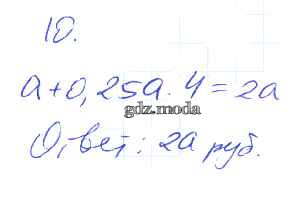 10.
a+0,25a·4=2a
gdz.moda
Ответ: 2a руб.